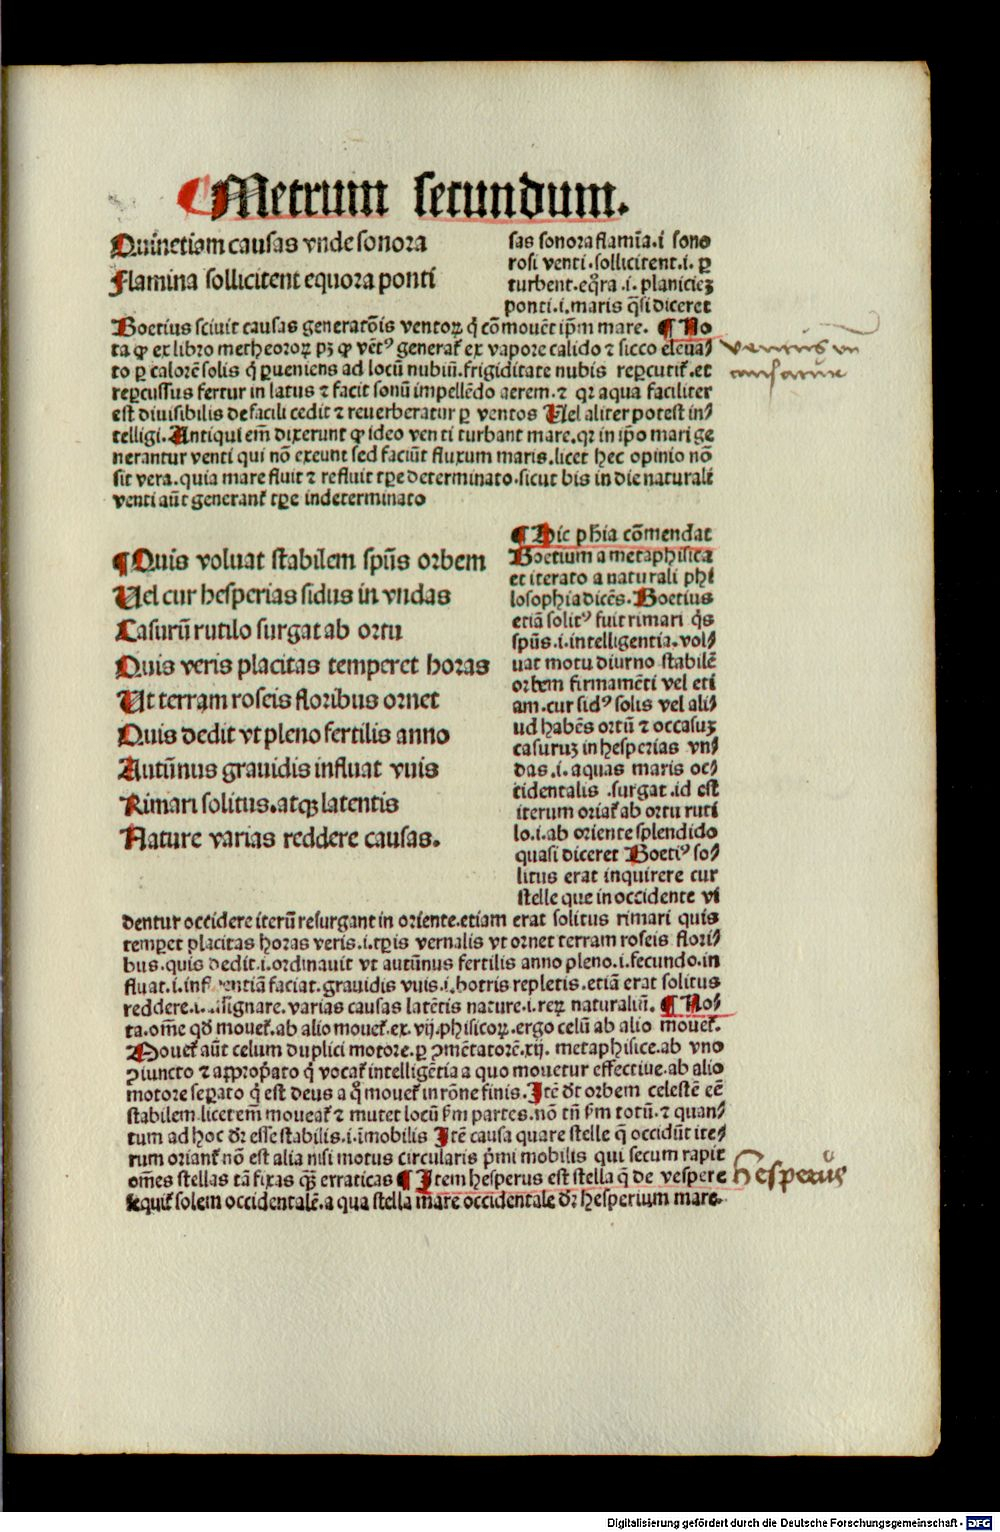 ¶ Metrum secundum.
Quinetiam causas vnde sonora
Flamina sollicitent equora ponti
sas sonora flamīa.i sono
rosi venti.sollicitent.i.ꝑ
turbent.eq̄ra .i. planiciez
ponti.i.maris q̄si diceret
Boetius sciuit causas generatōis ventoꝝ q̇ cōmouēt ip̄m mare. ¶ No
ta ꝙ ex libro metheoroꝝ pꝫ ꝙ vētꝰ generat᷑ ex vapore calido ⁊ sicco eleua/
to ꝑ calorē solis q̇ ꝑueniens ad locū nubiū.frigiditate nubis reꝑcutit᷑.et
reꝑcussus fertur in latus ⁊ facit sonū impellēdo aerem.⁊ qꝛ aqua faciliter
est diuisibilis de facili cedit ⁊ reuerberatur ꝑ ventos Uel aliter potest in/
telligi.Antiqui em̄ dixerunt ꝙ ideo venti turbant mare.qꝛ in ip̄o mari ge
nerantur venti qui nō exeunt sed faciūt fluxum maris.licet hec opinio nō
sit vera.quia mare fluit ⁊ refluit tꝑe determinato.sicut bis in die naturalē
venti aūt generant᷑ tꝑe indeterminato
ventus vn
causatur
¶ Quis voluat stabilem spūs orbem
Uel cur hesperias sidus in vndas
Casurū rutilo surgat ab ortu
Quis veris placitas temperet horas
Ut terram roseis floribus ornet
Quis dedit vt pleno fertilis anno
Autūnus grauidis influat vuis
Rimari solitus.atqꝫ latentis
Nature varias reddere causas.
¶ Hic phia cōmendat
Boetium a metaphisica
et iterato a naturali phi
losophia dicēs.Boetius
etiā solitꝰ fuit rimari q̇s
spūs.i.intelligentia.vol/
uat motu diurno stabilē
orbem firmamēti vel eti
am.cur sidꝰ solis vel ali/
ud habēs ortū ⁊ occasuꝫ
casuruꝫ in hesperias vn/
das.i.aquas maris oc/
cidentalis .surgat.id est
iterum oriat᷑ ab ortu ruti
lo.i.ab oriente splendido
quasi diceret Boetiꝰ so/
litus erat inquirere cur
stelle que in occidente vi
dentur occidere iterū resurgant in oriente.etiam erat solitus rimari quis
temꝑet placitas horas veris.i.tꝑis vernalis vt ornet terram roseis flori/
bus.quis dedit.i.ordinauit vt autūnus fertilis anno pleno.i.fecundo.in
fluat.i. faciat.grauidis vuis.i.botris repletis.etiā erat solitus
reddere.i. varias causas latētis nature.i.reꝝ naturaliū. ¶ No/
ta.om̄e qd̄ mouet᷑.ab alio mouet᷑.ex.vij.phisicoꝝ.ergo celū ab alio mouet᷑.
Mouet᷑ aūt celum duplici motore.ꝑ ꝯmētatorē.xij. metaphisice.ab vno
ꝯiuncto ⁊ aꝓpriato q̇ vocat᷑ intelligētia a quo mouetur effectiue.ab alio
motore seꝑato q̇ est deus a q̊ mouet᷑ in rōne finis.Itē dr̄ orbem celestē eē
stabilem.licet em̄ moueat᷑ ⁊ mutet locū ẜm partes.nō tn̄ ẜm totū.⁊ quan/
tum ad hoc dr̄ esse stabilis.i.īmobilis Itē causa quare stelle q̄ occidūt ite/
rum oriant᷑ nō est alia nisi motus circularis pͥmi mobilis qui secum rapit
om̄es stellas tā fixas qꝫ̄ erraticas ¶ Item hesperus est stella q̄ de vespere
sequit᷑ solem occidentalē.a qua stella mare occidentale dr̄ hesperium mare.
Hesperūs
Digitalisierung gefördert durch die Deutsche Forschungsgemeinschaft - DFG